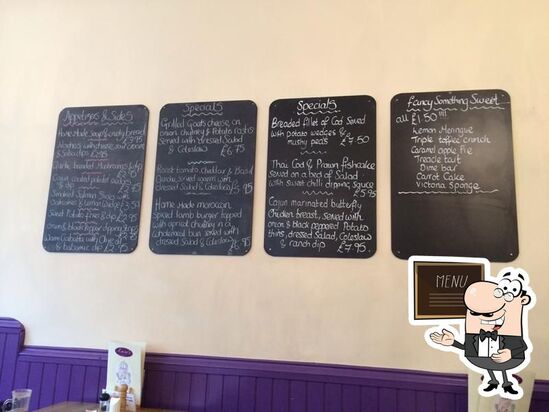 Appetizers & Sides
Home Made Soup & crusty bread
Nachos with cheese, sour cream
& Salsa dip £2.95
Garlic breaded Mushrooms & dip
Cajun coated potato wedges
Smoked Salmon
Sweet Potato fries & dip £2.95
onion & black pepper dipping
Warm Ciabatta with Olive oil
& balsamic dip
Specials
Grilled Goats cheese, on
onion chutney & Potato rostis
Served with dressed Salad
& Coleslaw £6.75
Roast tomato, cheddar & Basil
Quiche, served warm with
dressed Salad & Coleslaw
Home made moroccan
Spiced lamb burger topped
with apricot chutney in a
wholemeal bun served with
dressed Salad & Coleslaw
Specials
Breaded fillet of Cod Served
with potato wedges &
mushy peas £7.50
Thai Cod & Prawn fishcake
served on a bed of Salad
with sweet chilli dipping sauce
£5.95
Cajun marinated butterfly
Chicken breast, served with
onion & black peppered Potato
thins, dressed Salad, Coleslaw
& ranch dip £7.95
Fancy Something Sweet
all £1.50 !!!
Lemon Meringue
Triple toffee crunch
Caramel apple Pie
Treacle tart
Dime bar
Carrot Cake
Victoria Sponge
MENU